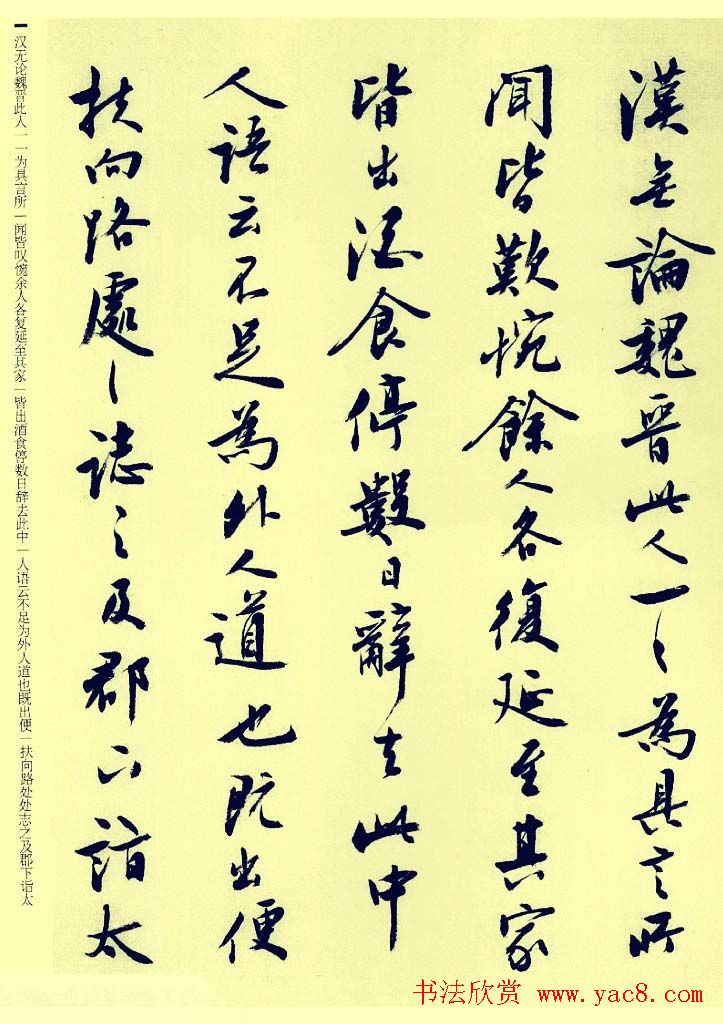 漢無論魏晉此人一〻為具言所
聞皆歎惋餘人各復延至其家
皆出酒食停數日辭去此中
人語云不足為外人道也既出便
扶向路處〻誌之及郡下詣太
汉无论魏晋此人一一为具言所|闻皆叹惋余人各复延至其家|皆出酒食停数日辞去此中|人语云不足为外人道也既出便|扶向路处处志之及郡下诣太
书法欣赏 www.yac8.com